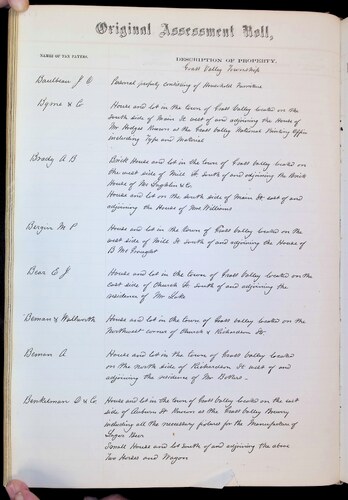 Original Assessment Roll,
NAMES OF TAX PAYERS.
DESCRIPTION OF PROPERTY.
Grass Valley Township
J C Personal property consisting of Household Furniture
Byrne & Co House and lot in the town of Grass Valley located on the
south side of Main St west of and adjoining the House of
Mr Hodge Known as the Grass Valley National Printing Office
including Type and Material
Brady A B Brick House and lot in the town of Grass Valley located on
the west side of Mill St south of and adjoining the Brick
House of & Co
House and lot on the south side of Main St east of and
adjoining the House of Mrs Williams
Bergin M P House and lot in the town of Grass Valley located on the
west side of Mill St south of and adjoining the House of
B
Bear E J House and lot in the town of Grass Valley located on the
east side of Church St south of and adjoining the
residence of Mr
Beman & Wadsworth House and lot in the town of Grass Valley located on the
Northwest corner of Church & Richardson St
Beman A House and lot in the town of Grass Valley located
on the north side of Richardson St west of and
adjoining the residence of Mr
Benkelman D & Co House and lot in the town of Grass Valley located on the east
side of Auburn St Known as the Grass Valley Brewery
including all the necessary fixtures for the Manufacture of
Lager Beer
Small House and lot South of and adjoining the above
Two Horses and Wagon